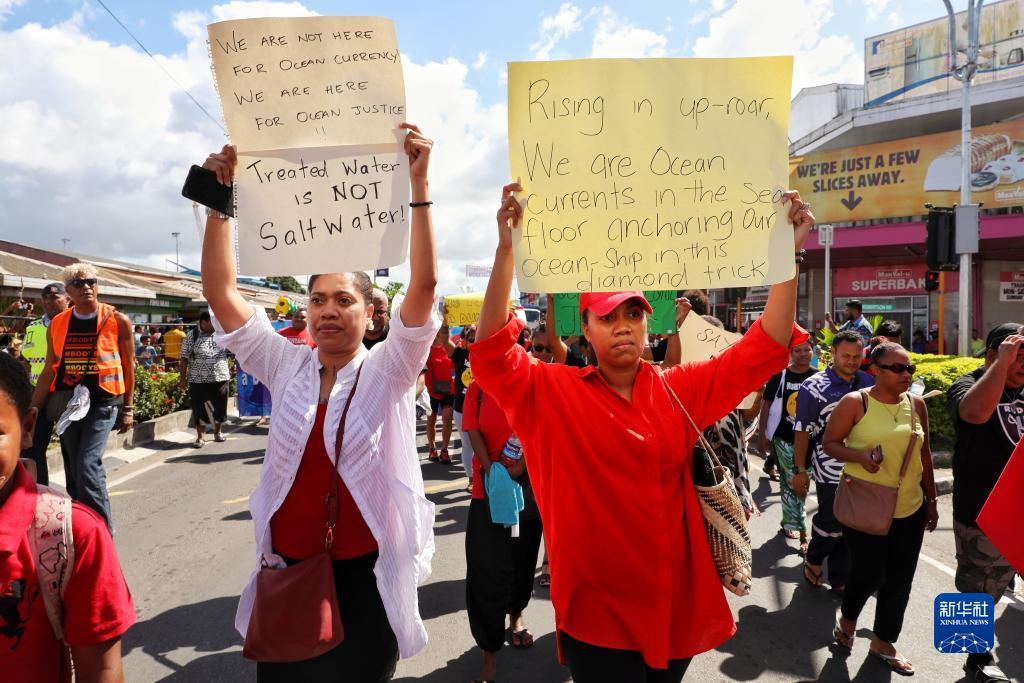 WE ARE NOT HERE
FOR OCEAN CURRENCY
WE ARE HERE
FOR OCEAN JUSTICE
!!
Treated Water
is NOT
SaltWater!
Rising in up-roar,
We are Ocean
Currents in the Sea
floor anchoring Our
ocean-ship in this
diamond trick
WE'RE JUST A FEW
SLICES AWAY.
SUPERBAK
新华社
XINHUA NEWS